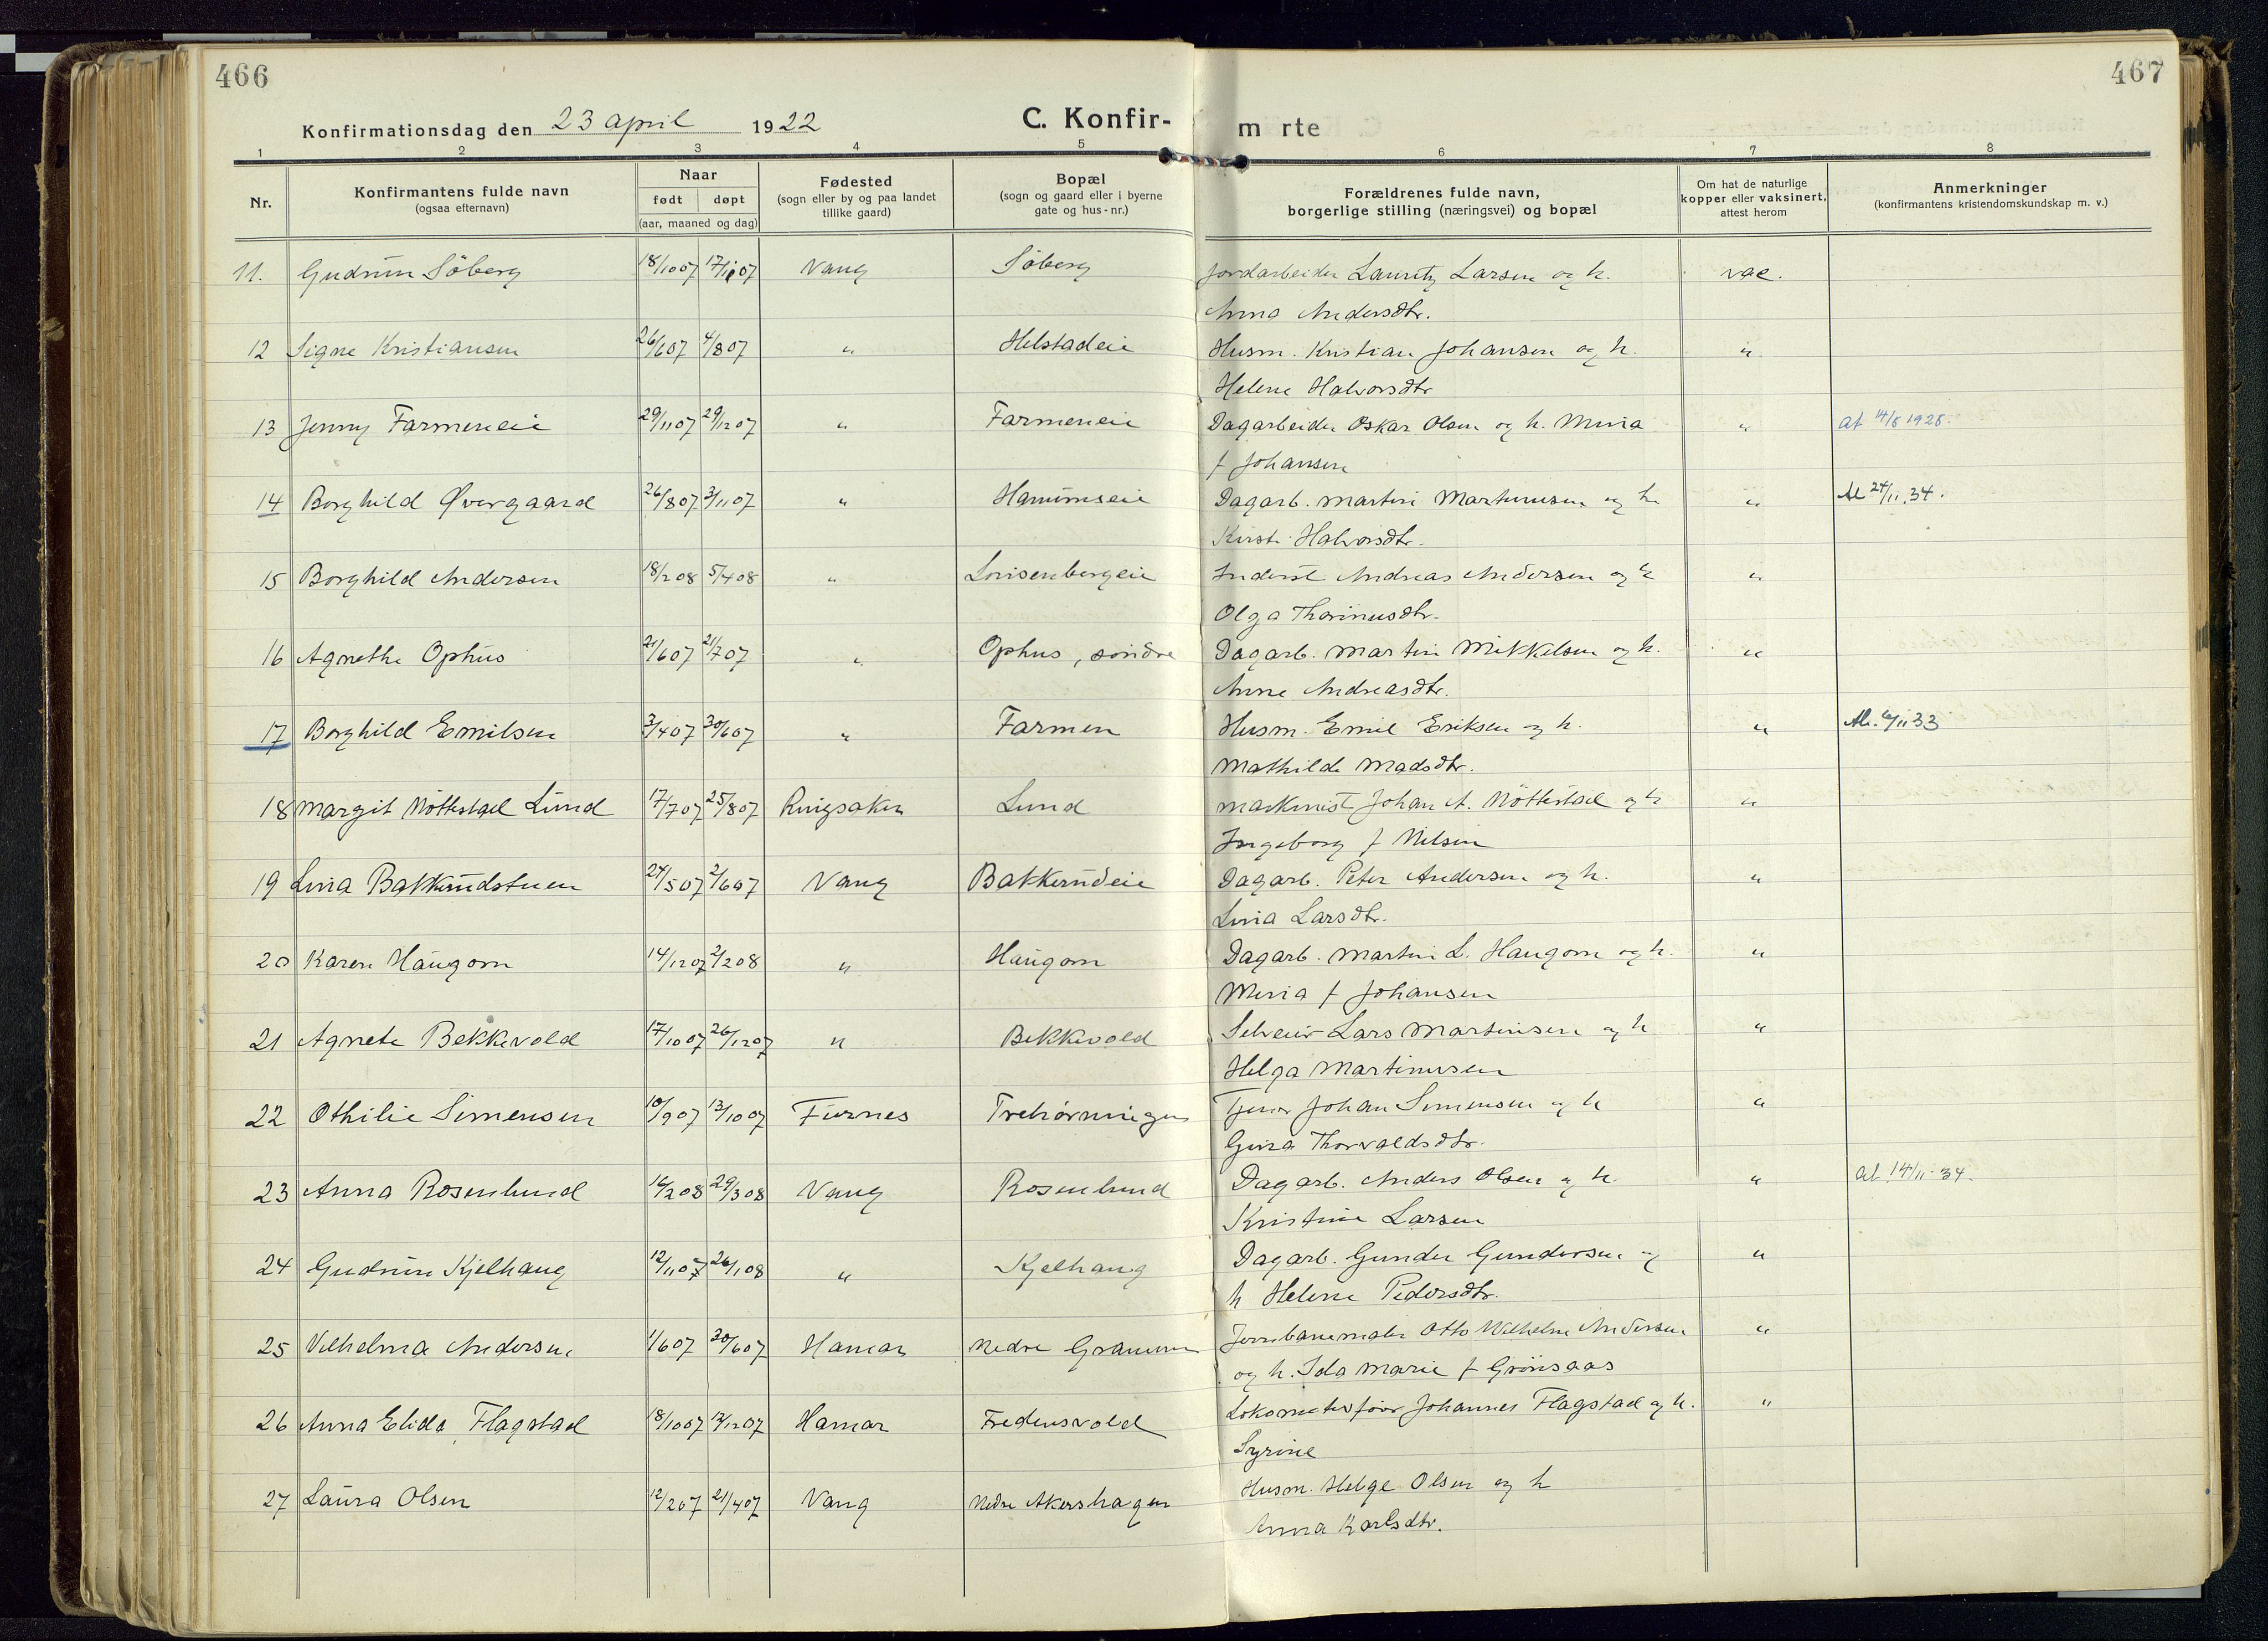 466
467
Konfirmationsdag den 23 april 1922
C. Konfir- m rte
1 2 3 4 5 6 7 8
Nr.
Konfirmantens fulde navn
(ogsaa efternavn)
Naar
født døpt
(aar, maaned og dag)
Fødested
(sogn eller by og paa landet
tillike gaard)
Bopæl
(sogn og gaard eller i byerne
gate og hus-nr.)
Forældrenes fulde navn,
borgerlige stilling (næringsvei) og bopæl
Om hat de naturlige
kopper eller vaksinert,
attest herom
Anmerkninger
(konfirmantens kristendomskundskap m. v.)
11. Gudrun Söberg 18/10 07 17/11 07 Vang Söberg Jordarbeider Lauritz Larsen og h. vac.
Anna Andersdtr.
12 Signe Kristiansen 26/6 07 4/8 07 " Helstadeie Husm. Kristian Johansen og h. "
Helene Halvorsdtr
13 Jenny Farmeneie 29/11 07 29/12 07 " Farmeneie Dagarbeider Oskar Olsen og h. Mina " at 14/8 1928.
f Johansen
14 Borghild Øvergaard 26/8 07 3/11 07 " Hanumseie Dagarb. Martin Martinusen og h. " At 24/11.34.
Kirsti Halvorsdtr.
15 Borghild Andersen 18/2 08 5/4 08 " Louisenbergeie Inderst Andreas Andersen og h "
Olga Thorinusdtr.
16 Agnethe Ophus 21/6 07 21/7 07 " Ophus, söndre Dagarb. Martin Mikkelsen og h. "
Anne Andreasdtr.
17 Borghild Emilsen 3/4 07 30/6 07 " Farmen Husm. Emil Eriksen og h. " At. 6/11 33
Mathilde Madsdtr.
18 Margit Nöttestad Lund 17/7 07 25/8 07 Ringsaker Lund Maskinist Johan A. Nöttestad og h "
Ingeborg f Nilsen
19 Lina Bakkerudstuen 24/5 07 2/6 07 Vang Bakkerudeie Dagarb. Peter Andersen og h. "
Lina Larsdtr.
20 Karen Haugom 14/12 07 2/2 08 " Haugom Dagarb. Martin L. Haugom og h. "
Mina f Johansen
21 Agnete Bekkevold 17/10 07 26/12 07 " Bekkevold Selveier Lars Martinsen og h "
Helga Martinusen
22 Othilie Simensen 10/9 07 13/10 07 Furnes Trehörningen Tjener Johan Simensen og h "
Gina Thorvaldsdtr.
23 Anna Rosenlund 16/2 08 29/3 08 Vang Rosenlund Dagarb. Anders Olsen og h. " at 14/11 34.
Kristine Larsen
24 Gudrun Kjelhaug 12/11 07 26/1 08 " Kjelhaug Dagarb. Gunder Gundersen og "
h Helene Pedersdtr.
25 Vilhelma Andersen 1/6 07 30/6 07 Hamar Nedre Grammen Jernbanemaler Otto Wilhelm Andersen "
og h. Ida Marie f Grönsaas
26 Anna Elida Flagstad 18/10 07 12/12 07 Hamar Fredensvold Lokomotivförer Johannes Flagstad og h. "
Syrine
27 Laura Olsen 12/2 07 21/4 07 Vang Nedre Akershagen Husm. Helge Olsen og h
Anna Karlsdtr.